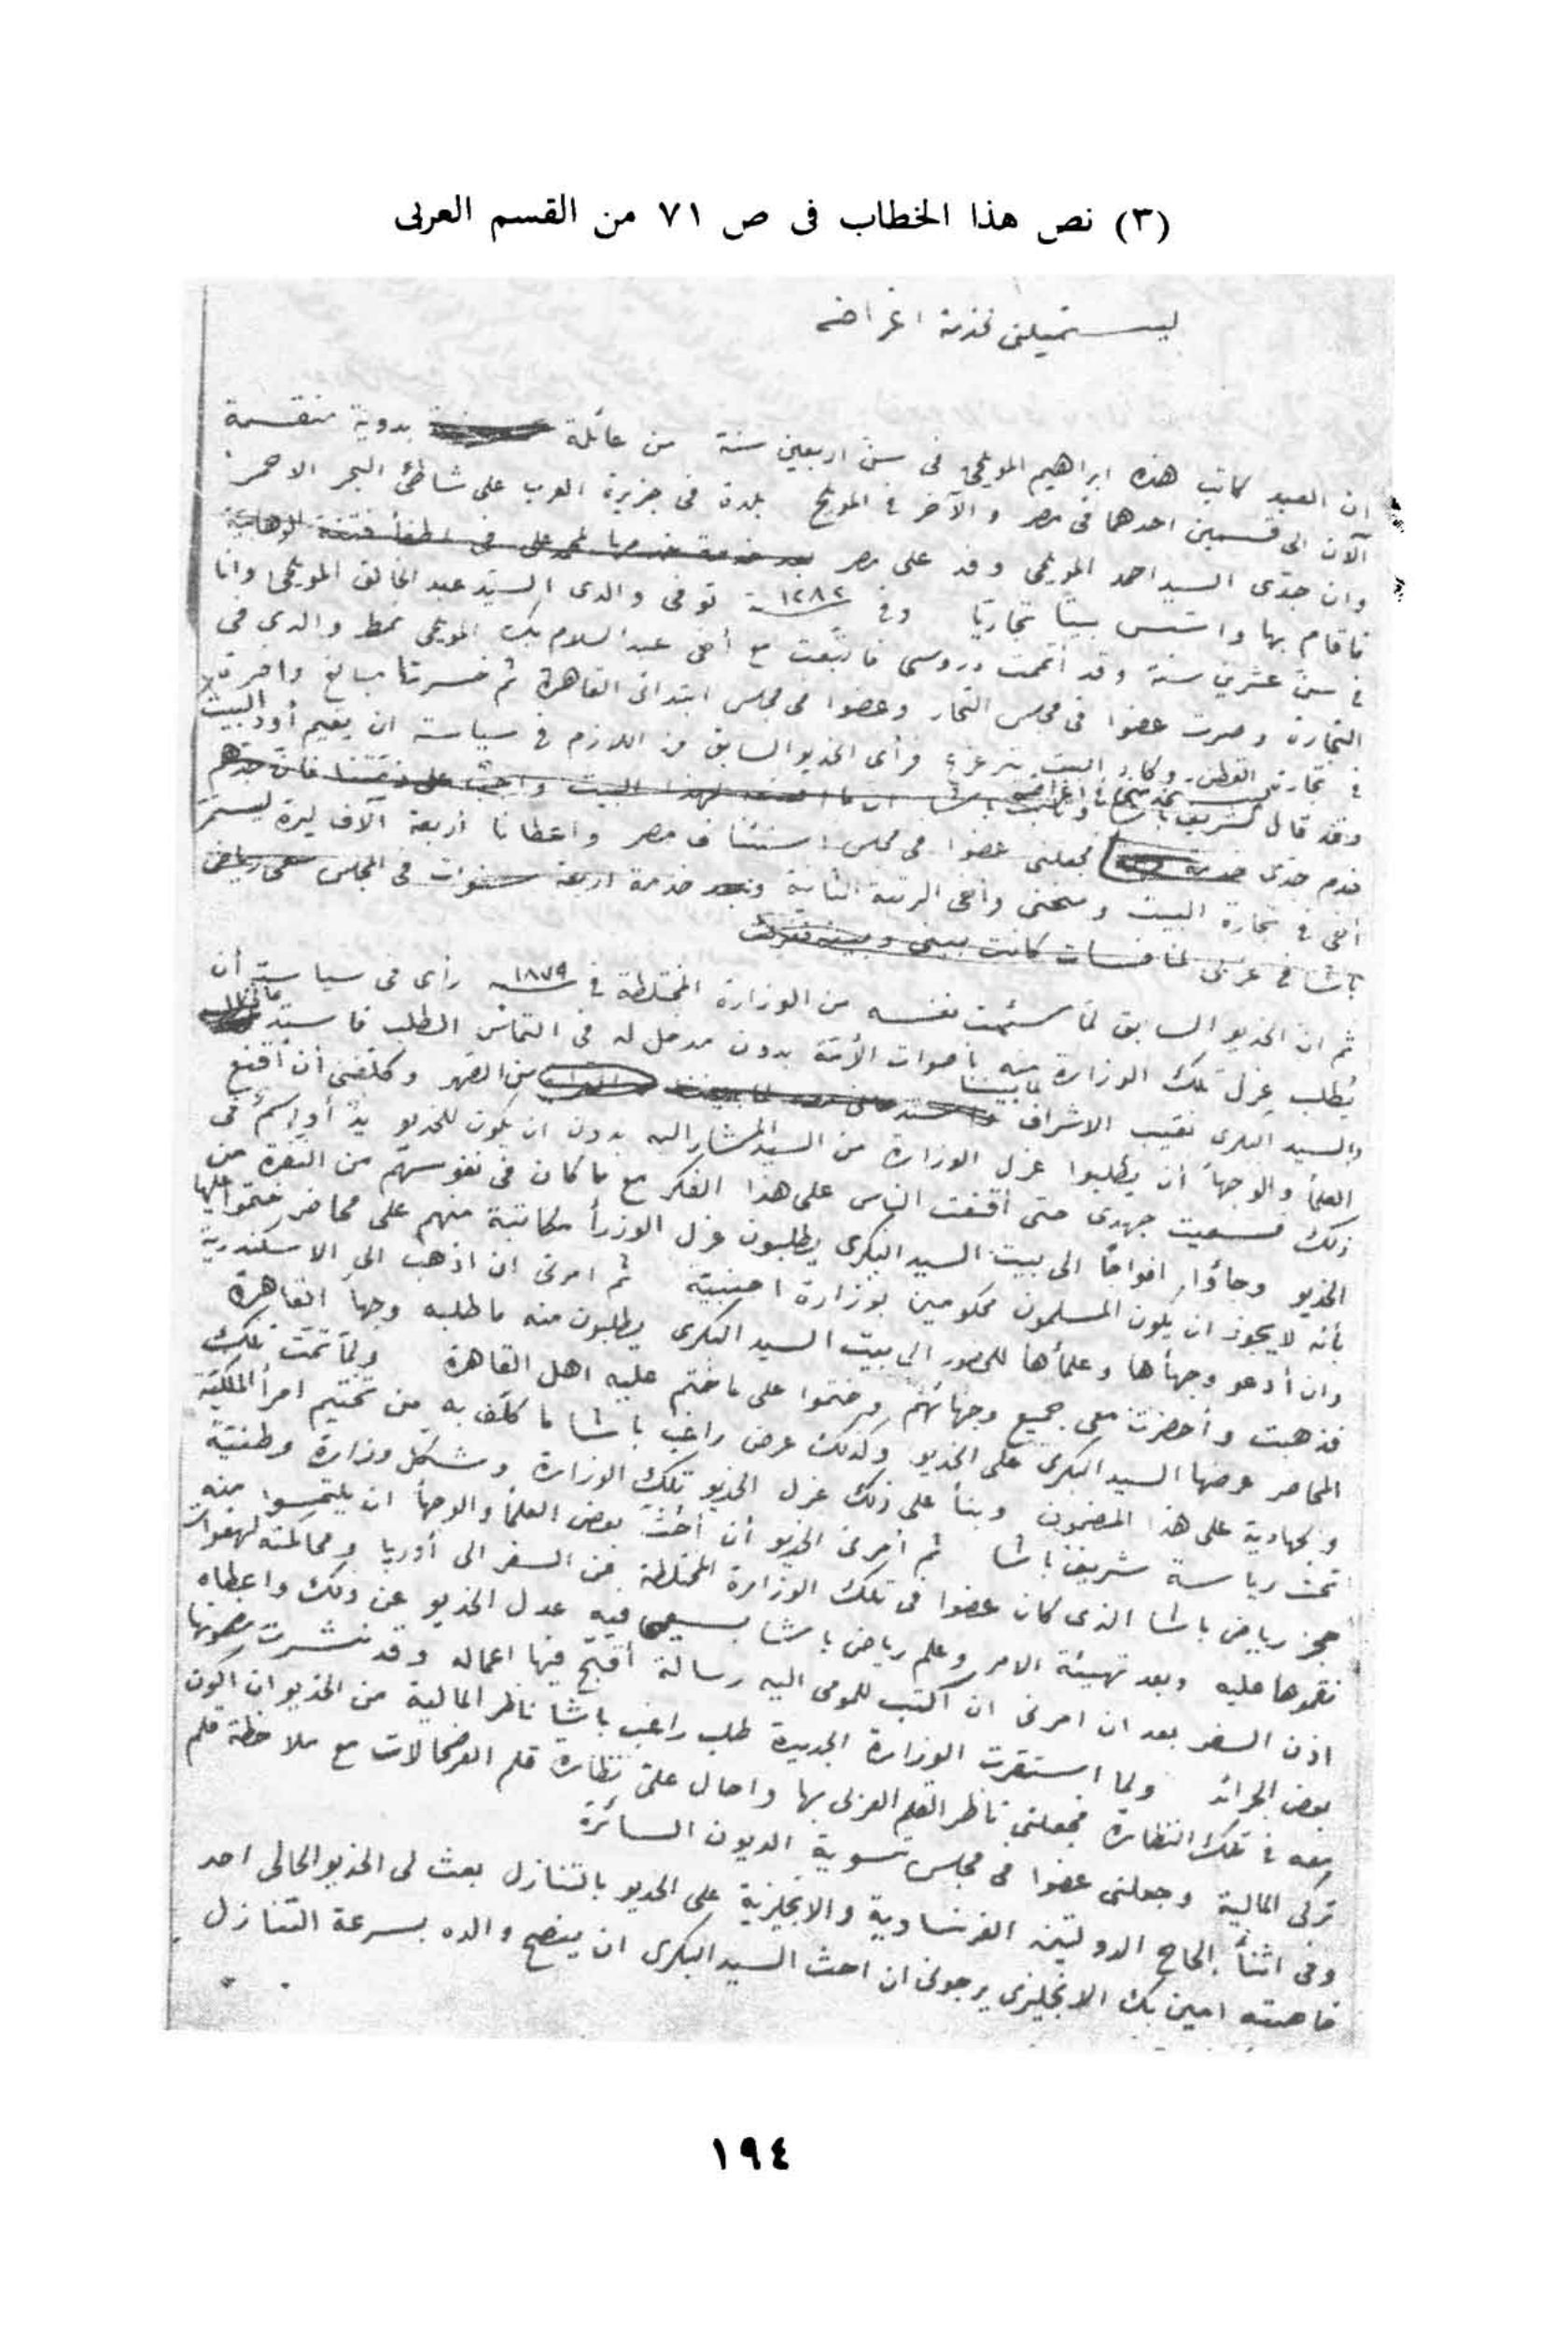 (٣) نص هذا الخطاب فى ص ٧١ من القسم العربى
ليستميلنى لخدمة اغراضه
ان العبد كاتب هذه ابراهيم المويلحى فى سن اربعين سنة من عائلة بدوية منقسمة
الآن الى قسمين احدهما فى مصر والآخر فى المويلح بلدة فى جزيرة العرب على شاطئ البحر الاحمر
وان جدى السيد احمد المويلحى وفد على مصر بعد خدمة خدمها لمحمد على فى اطفأ فتنة الوهابية
فاقام بها واسّس بيتاً تجارياً وفى سنة ١٢٨٢ توفى والدى السيد عبد الخالق المويلحى وانا
فى سن عشرين سنة وقد أتممت دروسى فاتبعت مع أخى عبد السلام بك المويلحى خط والدى فى
التجارة وصرت عضوا فى مجلس التجار وعضوا فى مجلس ابتدائى القاهرة ثم خسرنا مبالغ وافرة
فى تجارة القطن وكاد البيت يتزعزع فرأى الخديو السابق من اللازم فى سياسته ان يقيم أود البيت
وقد قال لشريف باشا وراغب باشا ان لهذا البيت واجب على ذمتنا فان جدهم
خدم جدى فجعلنى عضوا فى مجلس استئناف مصر واعطانا اربعة آلاف ليرة ليستمر
أخى فى تجارة البيت ومنحنى وأخى الرتبة الثانية وبعد خدمة اربعة سنوات فى المجلس سعى رياض
باشا فى عزلى لمنافسات كانت بينى وبينه
ثم ان الخديو السابق لما سئمت نفسه من الوزارة المختلطة فى سنة ١٨٧٩ رأى فى سياسته أن
يُطلب عزل تلك الوزارة منه بأصوات الأمّة بدون مدخل له فى التماس الطلب
والسيد البكرى نقيب الاشراف لما بيننا من الصهر وكلفنى أن أقنع
العلمأ والوجهأ أن يطلبوا عزل الوزارة من السيد المشار اليه بدون ان يكون للخديو يدٌ أو إسمٌ فى
ذلك فسعيت جهدى حتى أقنعت الناس على هذا الفكر مع ما كان فى نفوسهم من النفرة من
الخديو وجاؤا افواجاً الى بيت السيد البكرى يطلبون عزل الوزرأ مكاتبة منهم على محاضر ختموا عليها
بأنه لا يجوز ان يكون المسلمون محكومين بوزارة اجنبية ثم امرنى ان اذهب الى الاسكندرية
وان أدعو وجهأها وعلمأها للحضور الى بيت السيد البكرى يطلبون منه ما طلبه وجهأ القاهرة
فذهبت وأحضرت معى جميع وجهائهم وختموا على ما ختم عليه اهل القاهرة ولما تمت تلك
المحاضر عرضها السيد البكرى على الخديو وكذلك عرض راغب باشا ما كلف به من تختيم امرأ الملكية
والجهادية على هذا المضمون وبنأ على ذلك عزل الخديو تلك الوزارة وشكل وزارة وطنية
تحت رياسة شريف باشا ثم أمرنى الخديو أن أحث بعض العلمأ والوجهأ ان يلتمسوا منه
حجز رياض باشا الذى كان عضوا فى تلك الوزارة المختلطة عن السفر الى أوربا ومحاكمته لهفوات
نقموها عليه وبعد تهيئة الامر وعلم رياض باشا بسعى فيه عدل الخديو عن ذلك واعطاه
اذن السفر بعد ان امرنى ان اكتب للمومى اليه رسالة أقبح فيها اعماله وقد نشرت مضمونها
بعض الجرائد ولما استقرت الوزارة الجديدة طلب راغب باشا ناظر المالية من الخديو ان اكون
معه فى تلك النظارة فجعلنى ناظر القلم العربى بها واحال علىّ نظارة قلم العرضحالات مع ملاحظة قلم
تركى المالية وجعلنى عضوا فى مجلس تسوية الديون السائرة
وفى اثنأ الحاح الدولتين الفرنساوية والانجليزية على الخديو بالتنازل بعث لى الخديو الحالى احد
خاصته امين بك الانجليزى يرجونى ان احث السيد البكرى ان ينصح والده بسرعة التنازل
١٩٤